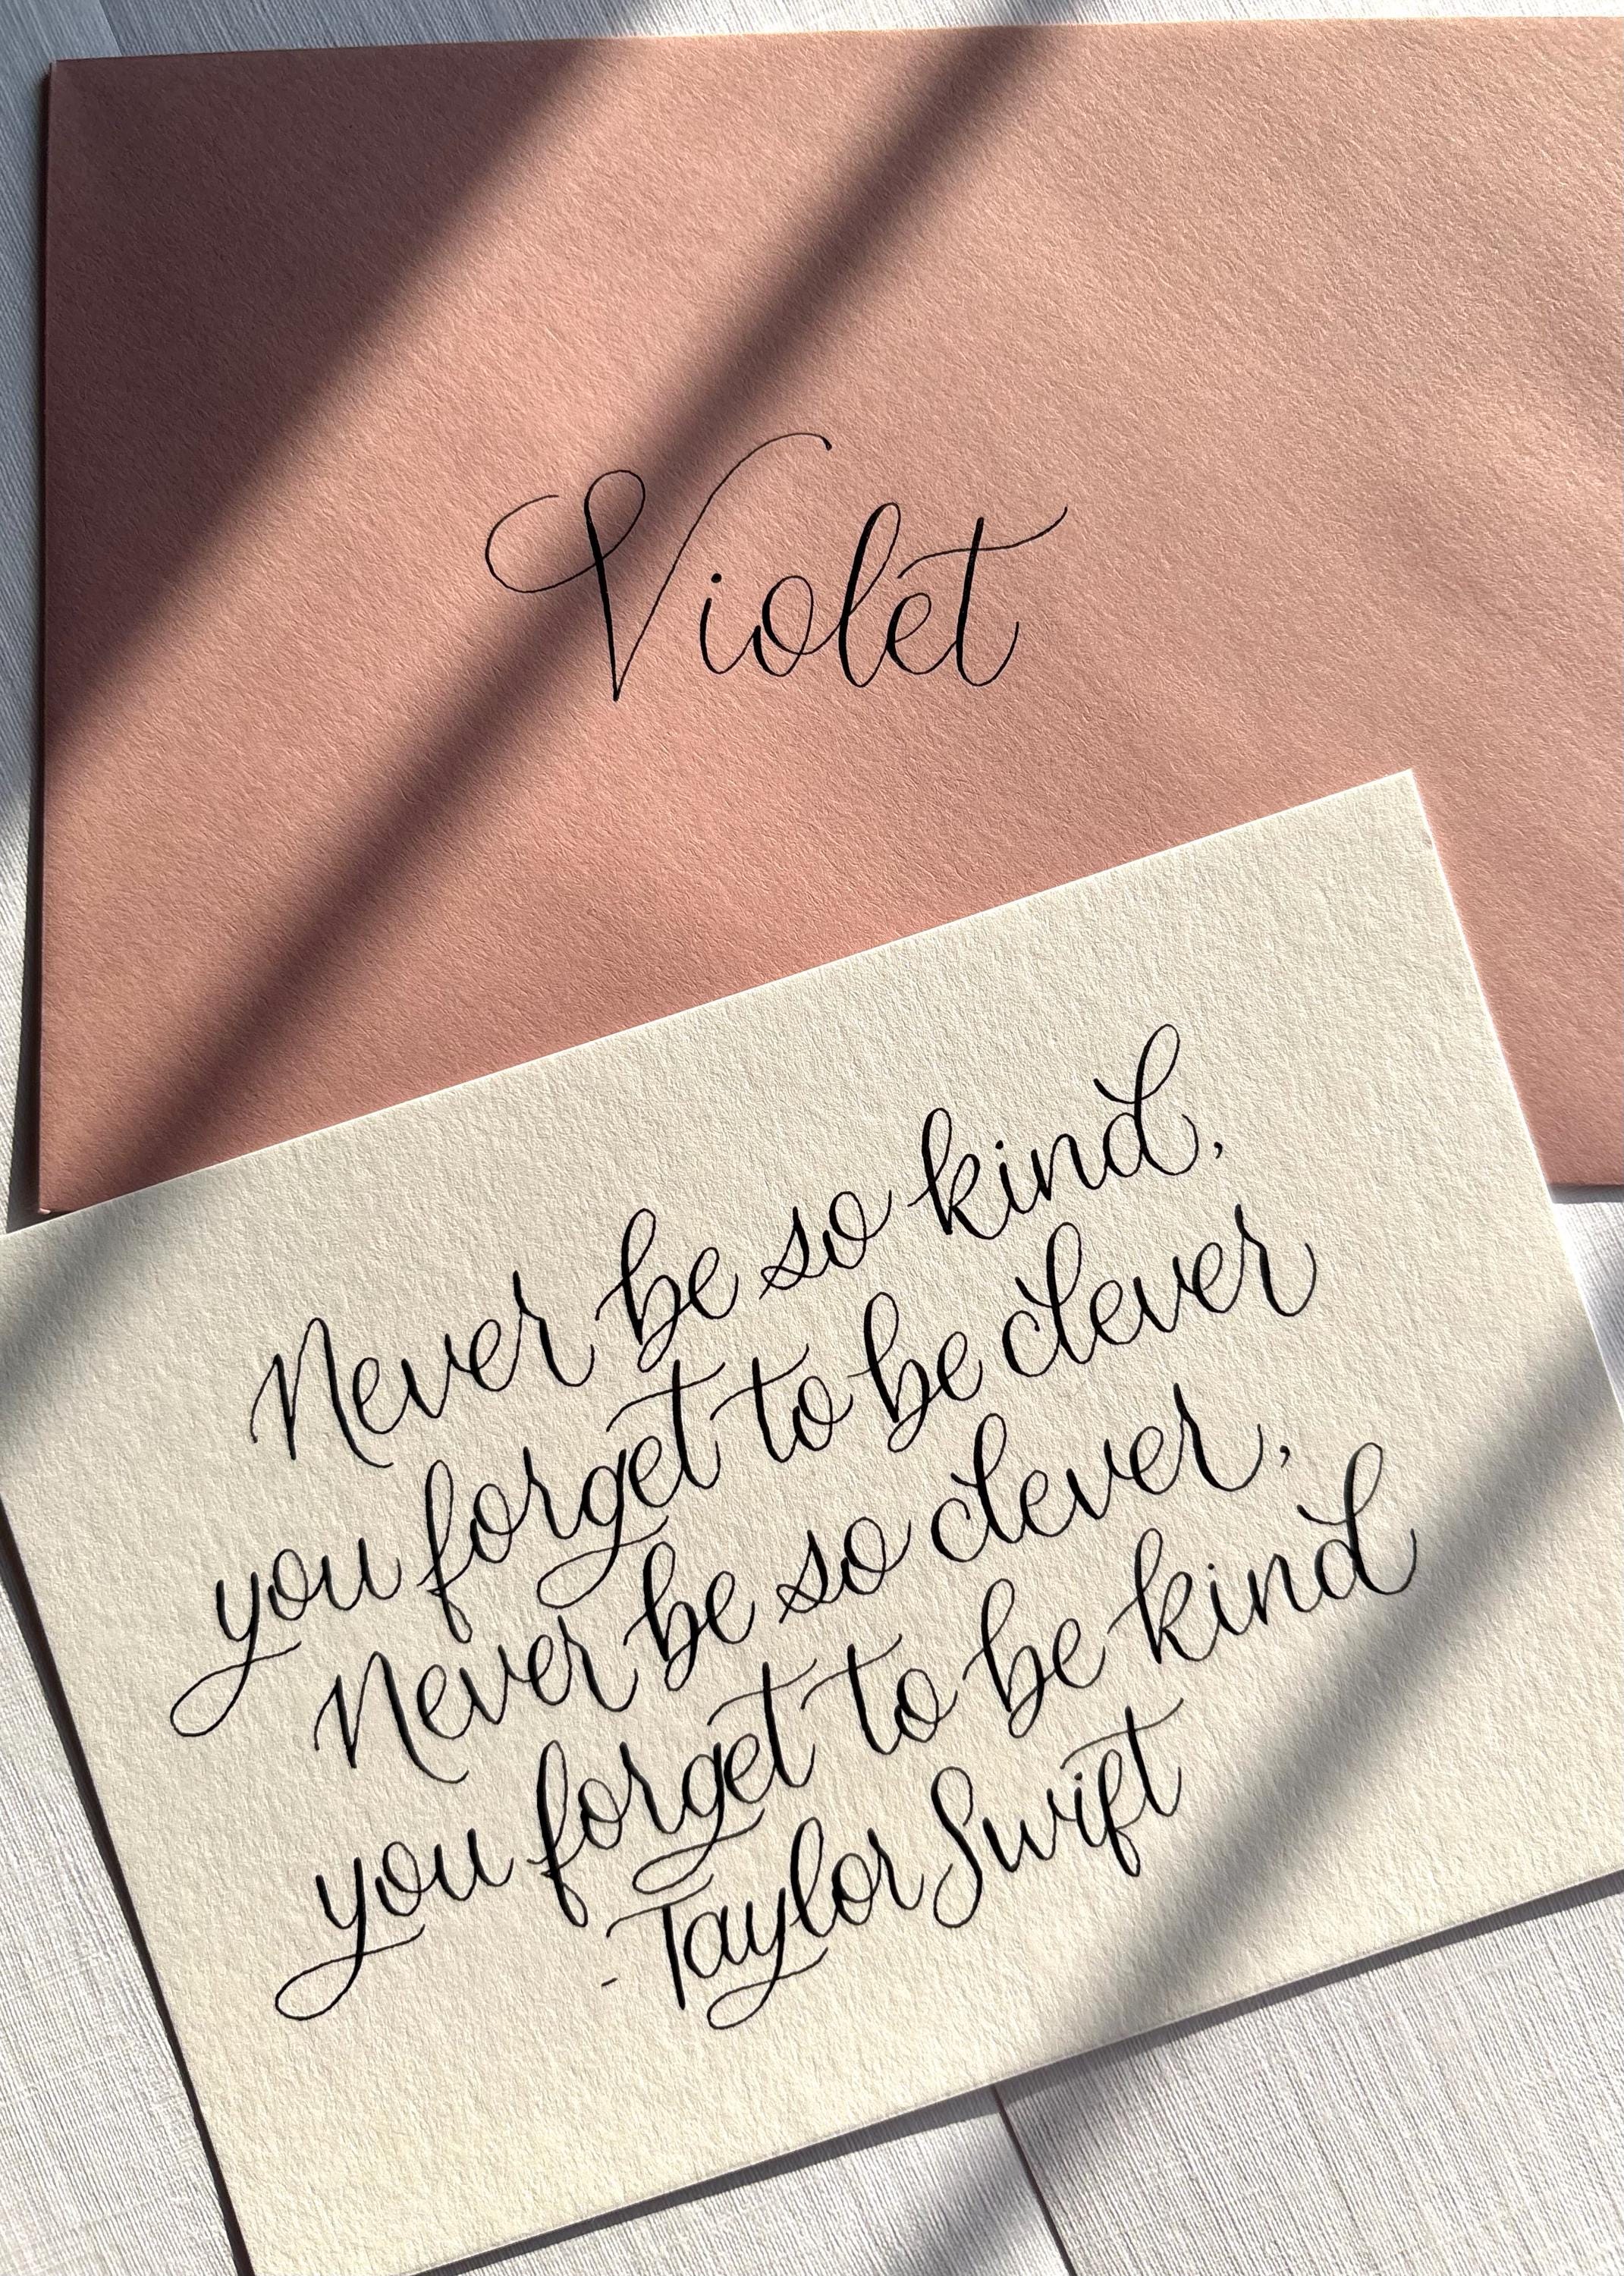 Violet
Never be so kind,
you forget to be clever
Never be so clever,
you forget to be kind
- Taylor Swift